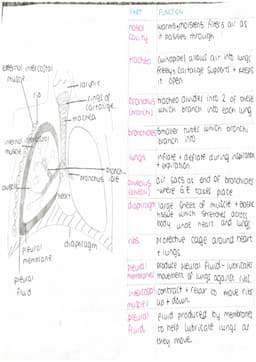 PART FUNCTION
nasal warms, moistens, filters air as
cavity it passes through
trachea (windpipe) allows air into lungs
freely, cartilage supports + keeps
it open
bronchus trachea divides into 2 of these
(bronchi) which branch into each lung
bronchioles smaller tubes which bronchi
branch into
lungs inflate + deflate during inspiration
+ expiration
alveolus air sacs at end of bronchioles
(alveoli) - where GE takes place
diaphragm large sheet of muscle + elastic
tissue which stretches across
body under heart and lungs
ribs protective cage around heart
+ lungs
pleural produce pleural fluid - lubricates
membranes movement of lungs against ribs
intercostal contract + relax to move ribs
muscles up + down
pleural fluid produced by membranes
fluid to help lubricate lungs as
they move.
external intercostal
muscle
rib
larynx
rings of
cartilage
trachea
internal intercostal
muscle
alveoli
bronchus
heart
pleural
membrane
diaphragm
pleural
fluid